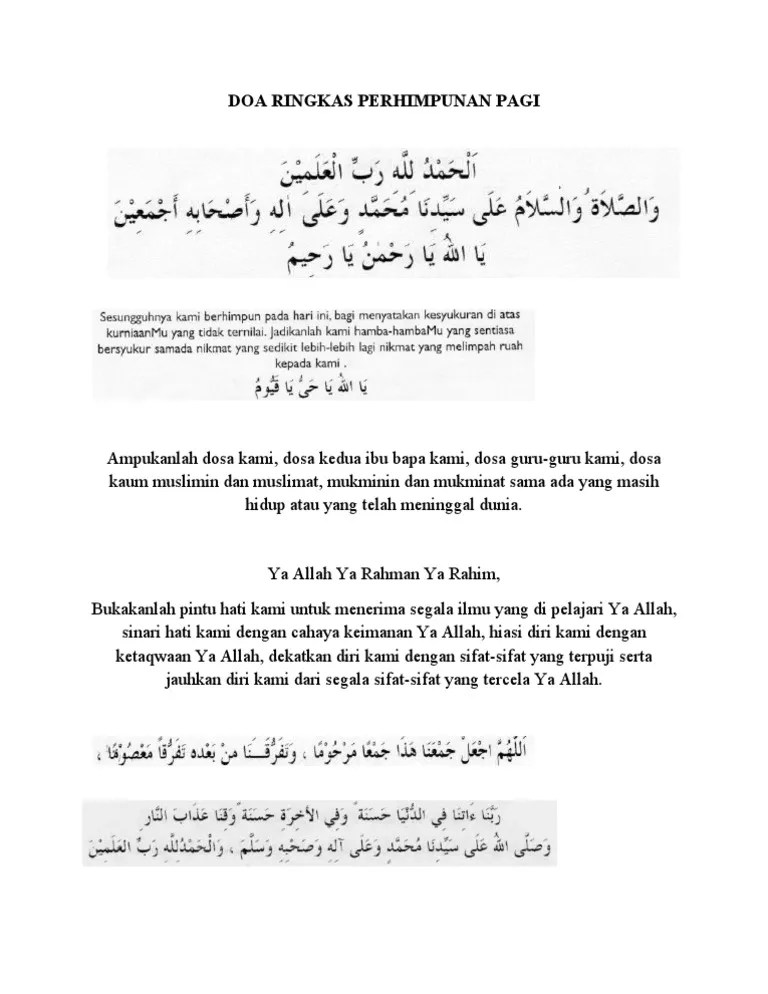 DOA RINGKAS PERHIMPUNAN PAGI
اَلْحَمْدُ لِلَّهِ رَبِّ الْعَلَمِيْنَ
وَالصَّلَاةُ وَالسَّلَامُ عَلَى سَيِّدِنَا مُحَمَّدٍ وَعَلَى اٰلِهِ وَأَصْحَابِهِ أَجْمَعِيْنَ
يَا اللهُ يَا رَحْمٰنُ يَا رَحِيمُ
Sesungguhnya kami berhimpun pada hari ini, bagi menyatakan kesyukuran di atas
kurniaanMu yang tidak ternilai. Jadikanlah kami hamba-hambaMu yang sentiasa
bersyukur samada nikmat yang sedikit lebih-lebih lagi nikmat yang melimpah ruah
kepada kami .
يَا اللهُ يَا حَيُّ يَا قَيُّومُ
Ampukanlah dosa kami, dosa kedua ibu bapa kami, dosa guru-guru kami, dosa
kaum muslimin dan muslimat, mukminin dan mukminat sama ada yang masih
hidup atau yang telah meninggal dunia.
Ya Allah Ya Rahman Ya Rahim,
Bukakanlah pintu hati kami untuk menerima segala ilmu yang di pelajari Ya Allah,
sinari hati kami dengan cahaya keimanan Ya Allah, hiasi diri kami dengan
ketaqwaan Ya Allah, dekatkan diri kami dengan sifat-sifat yang terpuji serta
jauhkan diri kami dari segala sifat-sifat yang tercela Ya Allah.
اَللّٰهُمَّ اجْعَلْ جَمْعَنَا هَذَا جَمْعًا مَرْحُوْمًا ، وَتَفَرُّقَـنَا مِنْ بَعْدِهِ تَفَرُّقاً مَعْصُوْمًا ،
رَبَّنَا ءَاتِنَا فِي الدُّنْيَا حَسَنَةً وَفِي الْأَخِرَةِ حَسَنَةً وَقِنَا عَذَابَ النَّارِ
وَصَلَّى اللهُ عَلَى سَيِّدِنَا مُحَمَّدٍ وَعَلَى آلِهِ وَصَحْبِهِ وَسَلَّمَ ، وَالْحَمْدُلِلَّهِ رَبِّ العَلَمِيْنَ